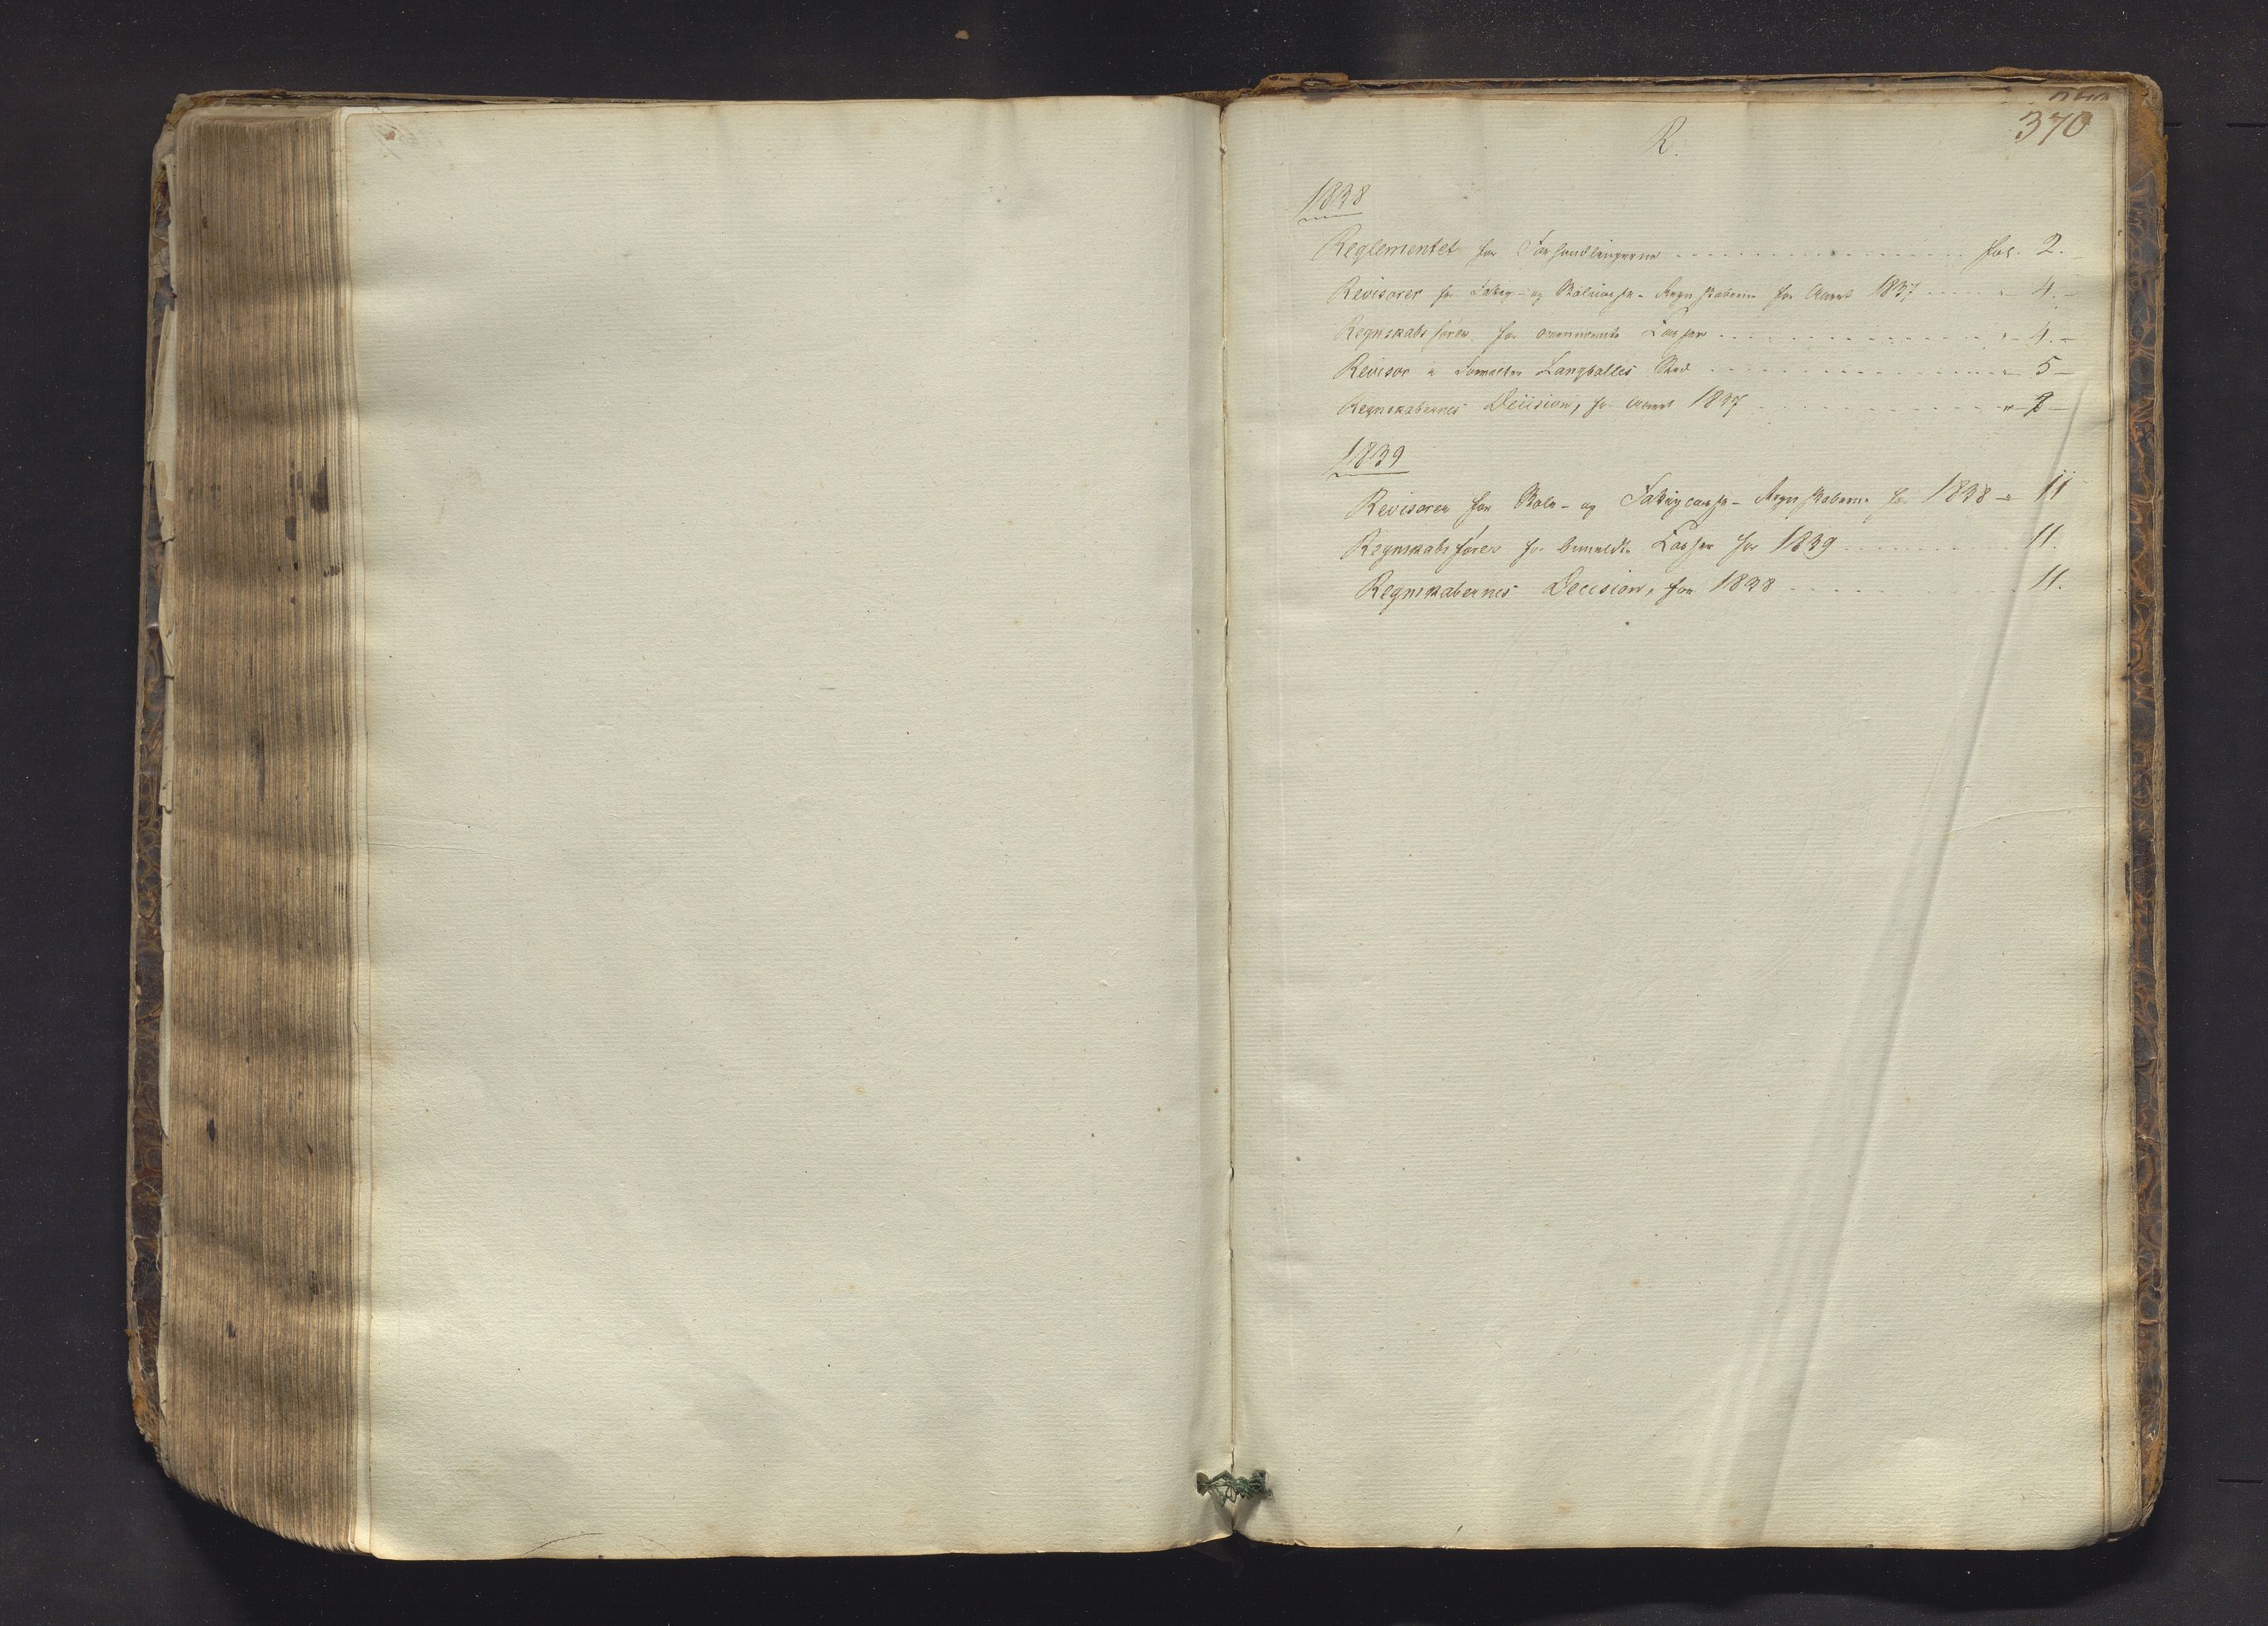 370
R.
1838
Reglementet for Forhandlingerne fol. 2.
Revisorer for Fattig- og Skolecasse-Regnskaberne for Aaret 1837 " 4.
Regnskabsfører for ovennævnte Casser " 4.
Revisor i Langballes Sted " 5
Regnskabernes Decision, for Aaret 1837 "
1839
Revisorer for Skole- og Fattigcasse-Regnskaberne for 1838 " 11
Regnskabsfører for bemeldte Casser for 1839 11.
Regnskabernes Decision, for 1838 11.